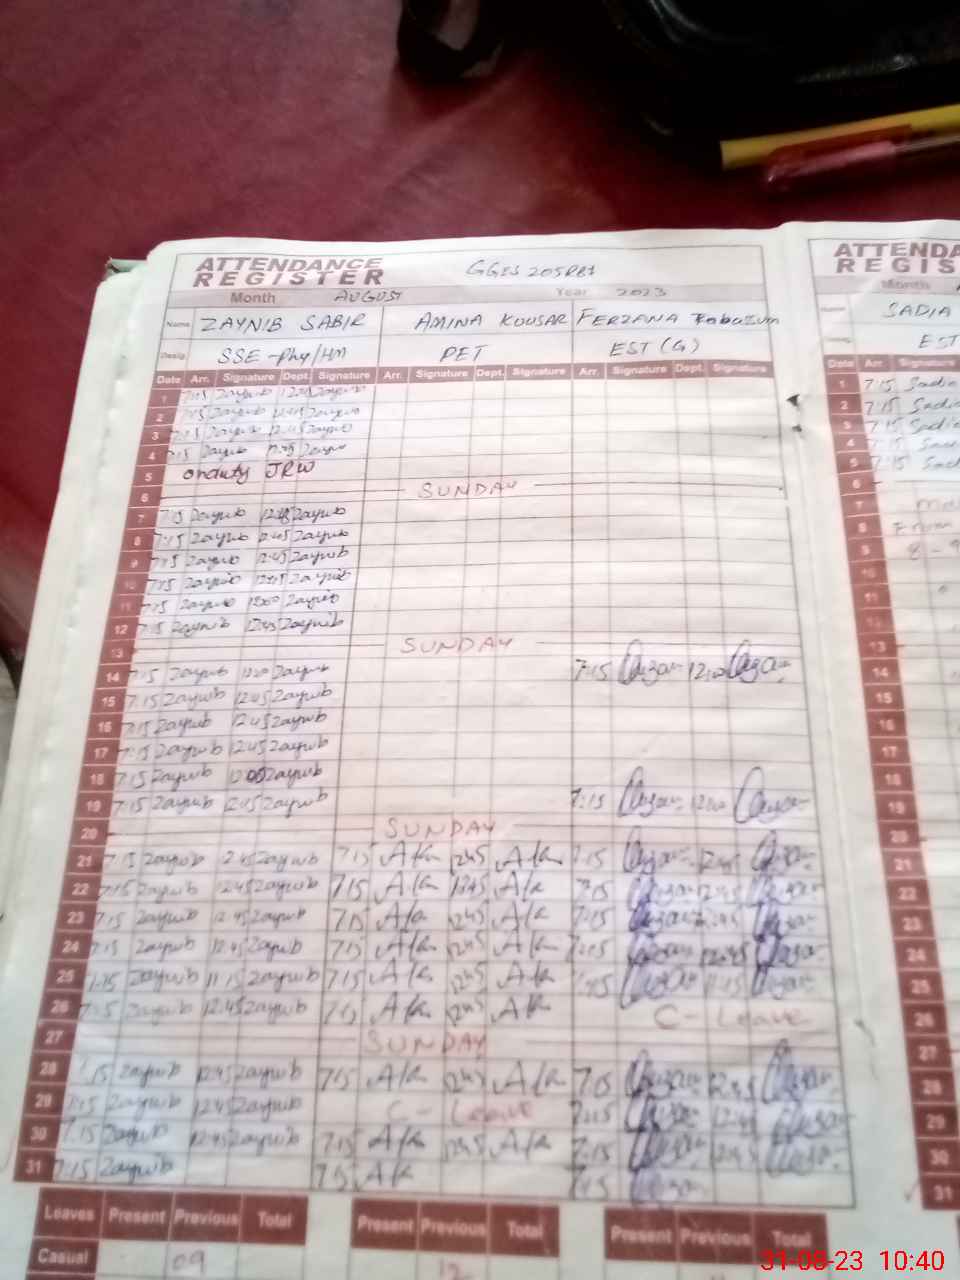 ATTENDANCE REGISTER GGES 205RB1
Month AUGUST Year 2023
Name ZAYNIB SABIR AMINA KOUSAR FERZANA
Desig. SSE - Phy/HM PET EST (G)
Date Arr. Signature Dept. Signature Arr. Signature Dept. Signature Arr. Signature Dept. Signature
1 7:15 Zaynib Zaynib
2 7:15 Zaynib 12:45 Zaynib
3 7:15 Zaynib 12:45 Zaynib
4 7:15 Zaynib 12:45 Zaynib
5 onduty JRW
6 SUNDAY
7 7:15 Zaynib Zaynib
8 7:15 Zaynib 12:45 Zaynib
9 7:15 Zaynib 12:45 Zaynib
10 7:15 Zaynib 12:45 Zaynib
11 7:15 Zaynib Zaynib
12 7:15 Zaynib 12:45 Zaynib
13 SUNDAY
14 7:15 Zaynib Zaynib 7:15
15 7:15 Zaynib 12:45 Zaynib
16 7:15 Zaynib 12:45 Zaynib
17 7:15 Zaynib 12:45 Zaynib
18 7:15 Zaynib Zaynib
19 7:15 Zaynib 12:45 Zaynib 7:15
20 SUNDAY
21 7:15 Zaynib 12:45 Zaynib 7:15 A/K 12:45 A/K 7:15 12:45
22 7:15 Zaynib 12:45 Zaynib 7:15 A/K 12:45 A/K 7:15 12:45
23 7:15 Zaynib 12:45 Zaynib 7:15 A/K 12:45 A/K 7:15 12:45
24 7:15 Zaynib 12:45 Zaynib 7:15 A/K 12:45 A/K 7:15 12:45
25 7:15 Zaynib 11:15 Zaynib 7:15 A/K 12:45 A/K 7:15 11:45
26 7:15 Zaynib 12:45 Zaynib 7:15 A/K 12:45 A/K C - Leave
27 SUNDAY
28 7:15 Zaynib 12:45 Zaynib 7:15 A/K 12:45 A/K 7:15 12:45
29 7:15 Zaynib 12:45 Zaynib C - Leave 7:15 12:45
30 7:15 Zaynib 12:45 Zaynib 7:15 A/K 12:45 A/K 7:15 12:45
31 7:15 Zaynib 7:15 A/K 7:15
Leaves Present Previous Total Present Previous Total Present Previous Total
Casual 09 12
ATTENDA
REGIS
Month
Name SADIA
EST
Date Arr. Signature
1 7:15 Sadia
2 7:15 Sadia
3 7:15 Sadia
4 7:15 Sadia
5 7:15 Sadia
6
7
8 From
9 8 - 9
10
11
12
13
14
15
16
17
18
19
20
21
22
23
24
25
26
27
28
29
30
31
31-08-23 10:40